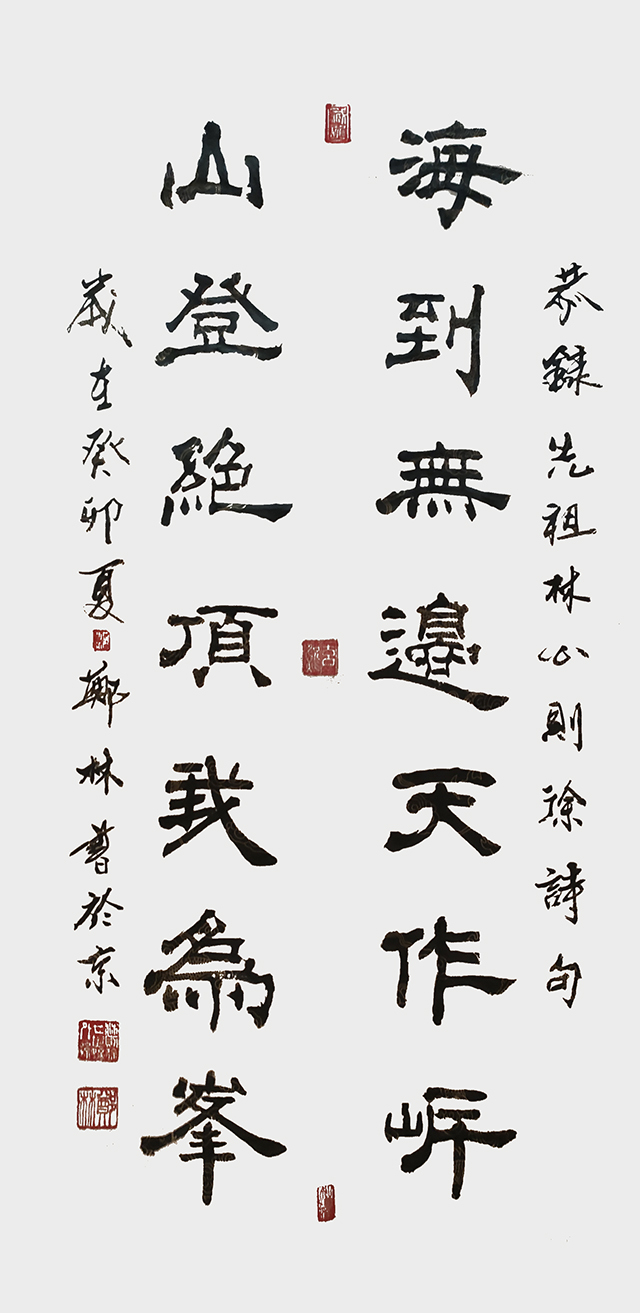 恭録先祖林公則徐詩句
海到無邊天作岸
山登絶頂我為峯
歲在癸卯夏
鄭林書於京